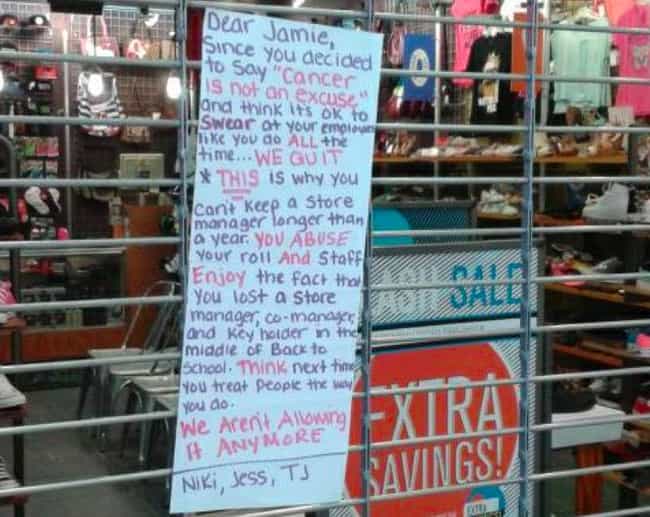 Dear Jamie,
Since you decided
to say "Cancer
is not an excuse"
and think its ok to
swear at your employees
like you do ALL the
time... WE QUIT
* THIS is why you
can't keep a store
manager longer than
a year. YOU ABUSE
your roll And Staff
Enjoy the fact that
you lost a store
manager, co-manager,
and key holder in the
middle of Back to
School. Think next time
you treat people the way
you do.
We Aren't Allowing
it ANYMORE
Niki, Jess, TJ
SALE
EXTRA
SAVINGS!
EXTRA